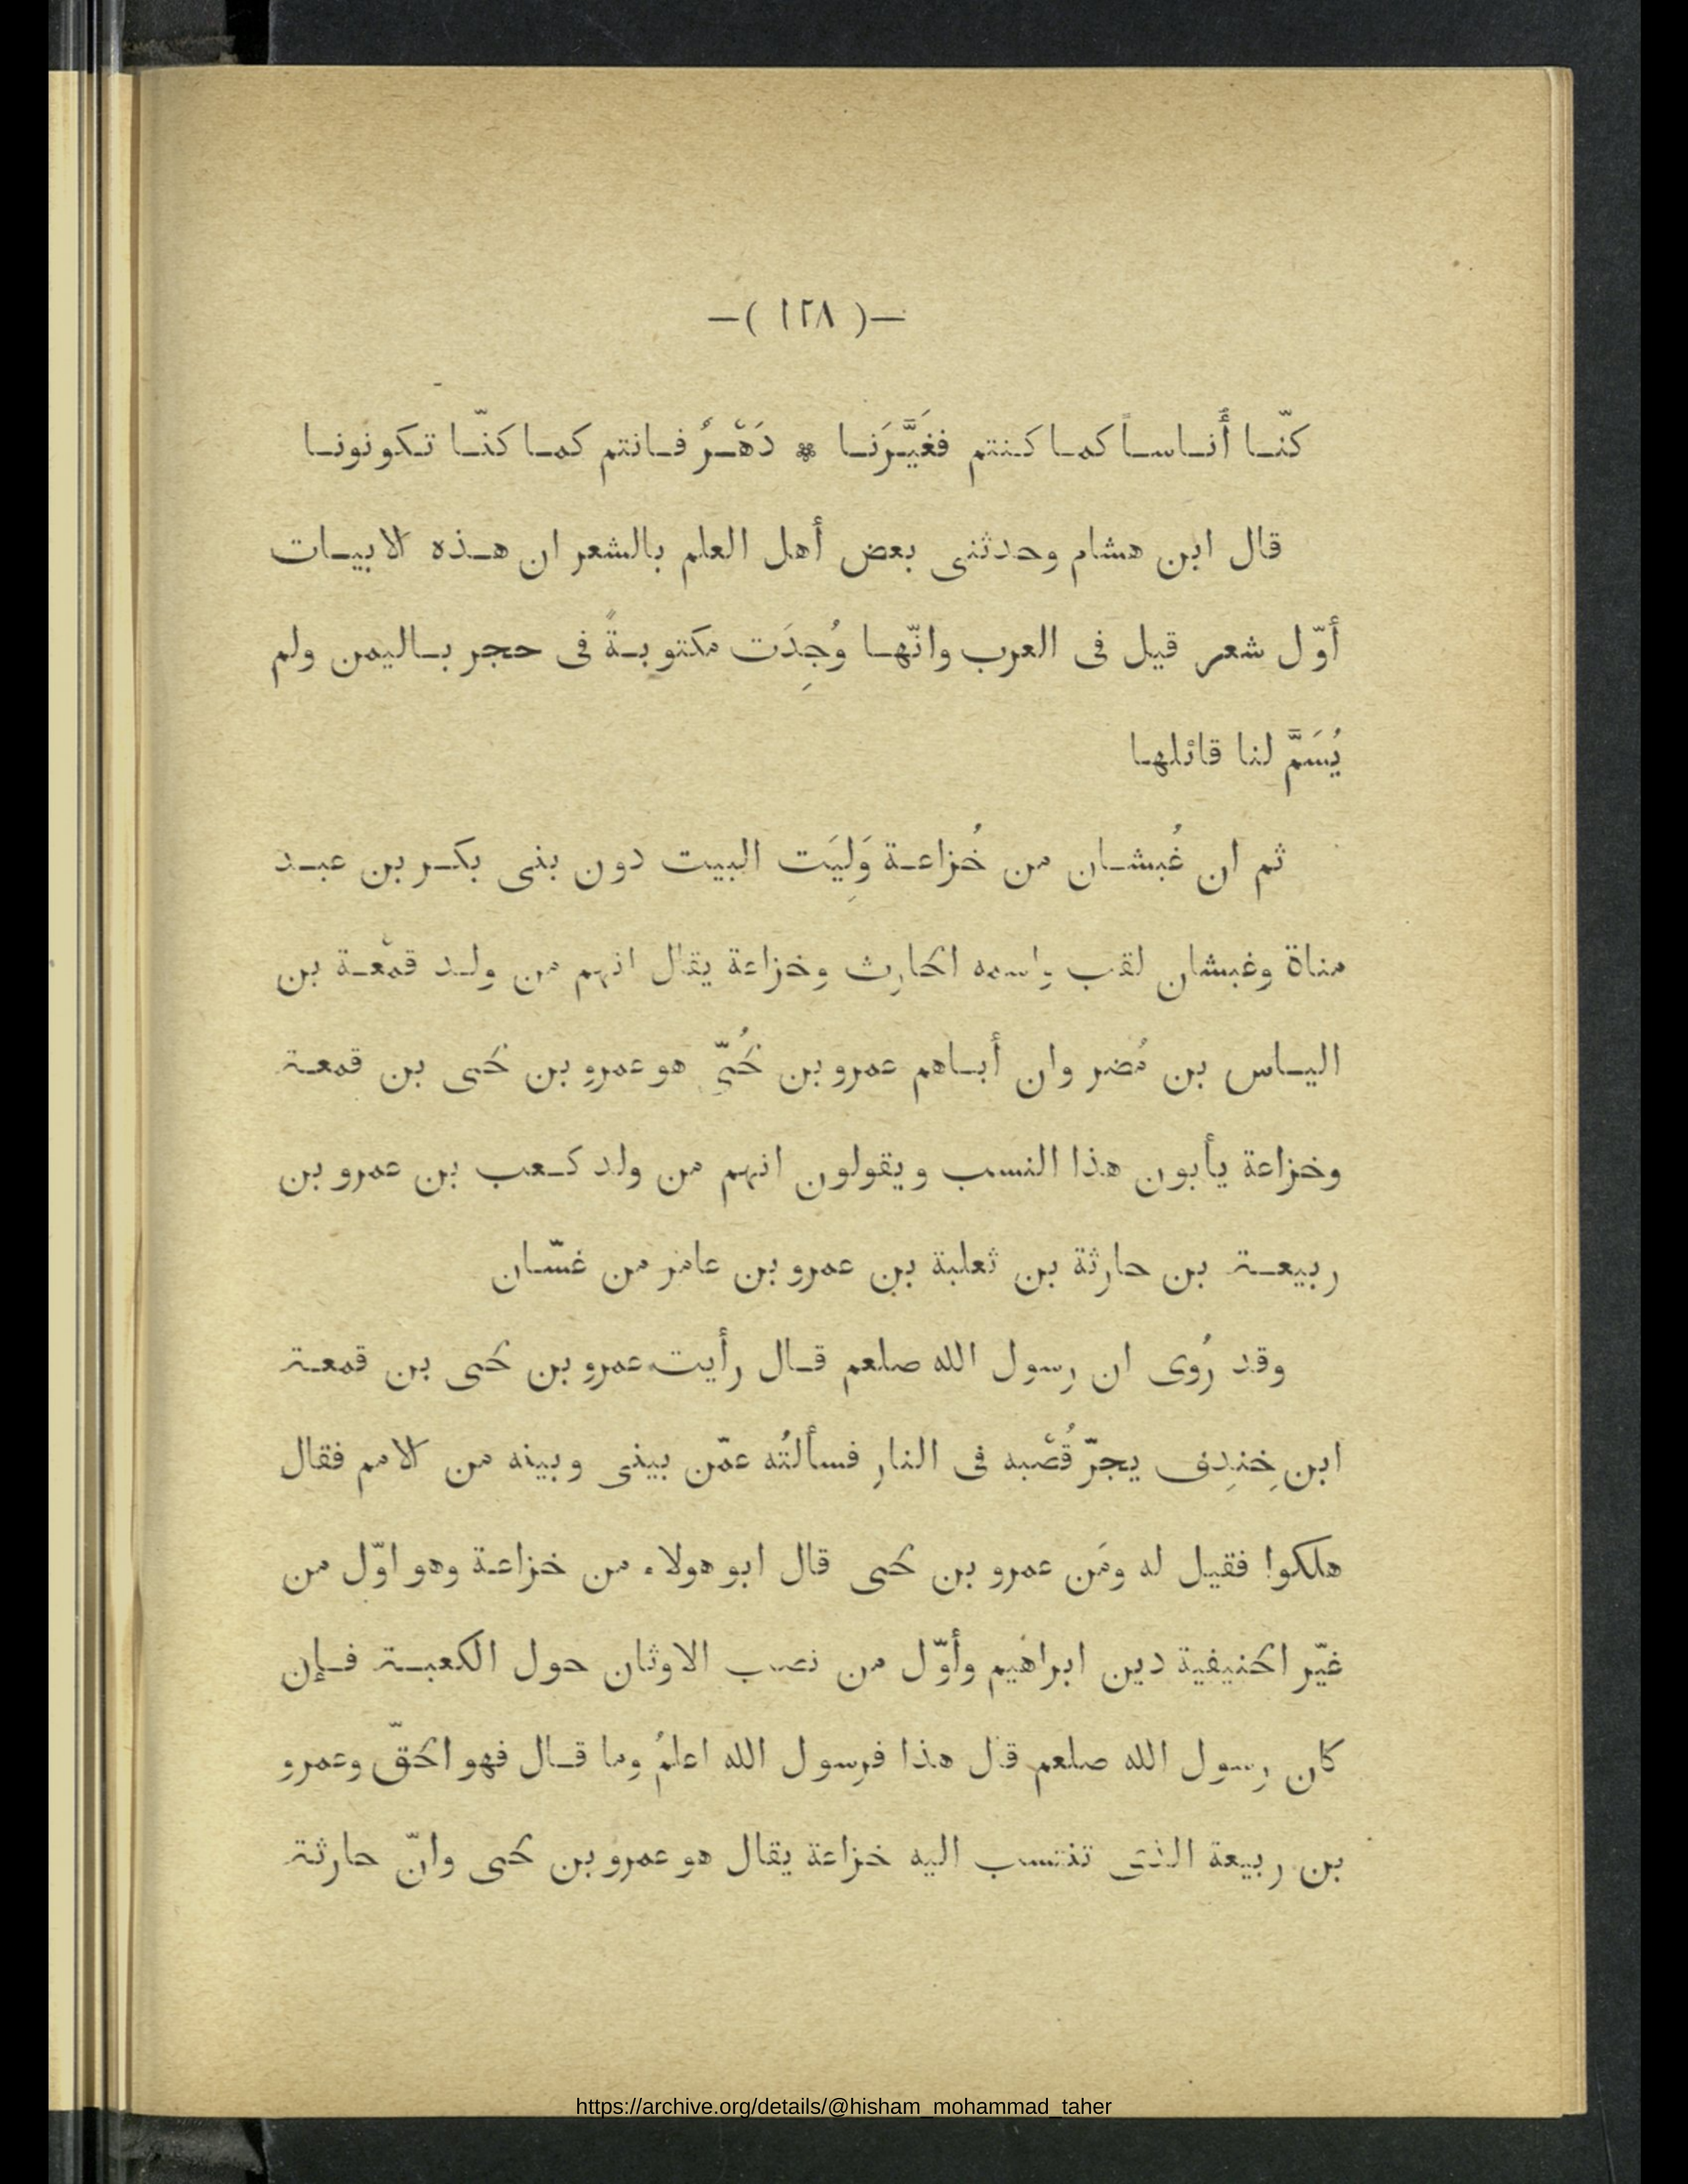 —( ١٢٨ )—
كنّـا أُنـاسـاً كمـا كنتم فغَيَّـرَنـا * دَهْـرٌ فـانتم كمـا كنّـا تـكونونـا
قال ابن هشام وحدثنى بعض أهل العلم بالشعر ان هـذه الابيـات
أوّل شعر قيل فى العرب وانّهـا وُجِدَت مكتوبـةً فى حجر بـاليمن ولم
يُسَمَّ لنا قائلهـا
ثم ان غُبشـان من خُزاعـة وَلِيَت البيت دون بنى بكـر بن عبـد
مناة وغبشان لقب واسمه الحارث وخزاعة يقال انهم من ولـد قمْعـة بن
اليـاس بن مُضر وان أبـاهم عمرو بن لُحَىّ هو عمرو بن لحى بن قمعـة
وخزاعة يأبون هذا النسب ويقولون انهم من ولد كـعب بن عمرو بن
ربيعـة بن حارثة بن ثعلبة بن عمرو بن عامر من غسّـان
وقد رُوى ان رسول الله صلعم قـال رأيت عمرو بن لحى بن قمعـة
ابن خِندِف يجرّ قُصْبه فى النار فسألتُه عمّن بينى وبينه من الامم فقال
هلكوا فقيل له ومَن عمرو بن لحى قال ابو هولاء من خزاعـة وهو اوّل من
غيّر الحنيفية دين ابراهيم وأوّل من نصب الاوثان حول الكعبـة فـإن
كان رسول الله صلعم قال هذا فرسول الله اعلمُ وما قـال فهو الحقّ وعمرو
بن ربيعة الذى تنتسب اليه خزاعة يقال هو عمرو بن لحى وانّ حارثة
https://archive.org/details/@hisham_mohammad_taher